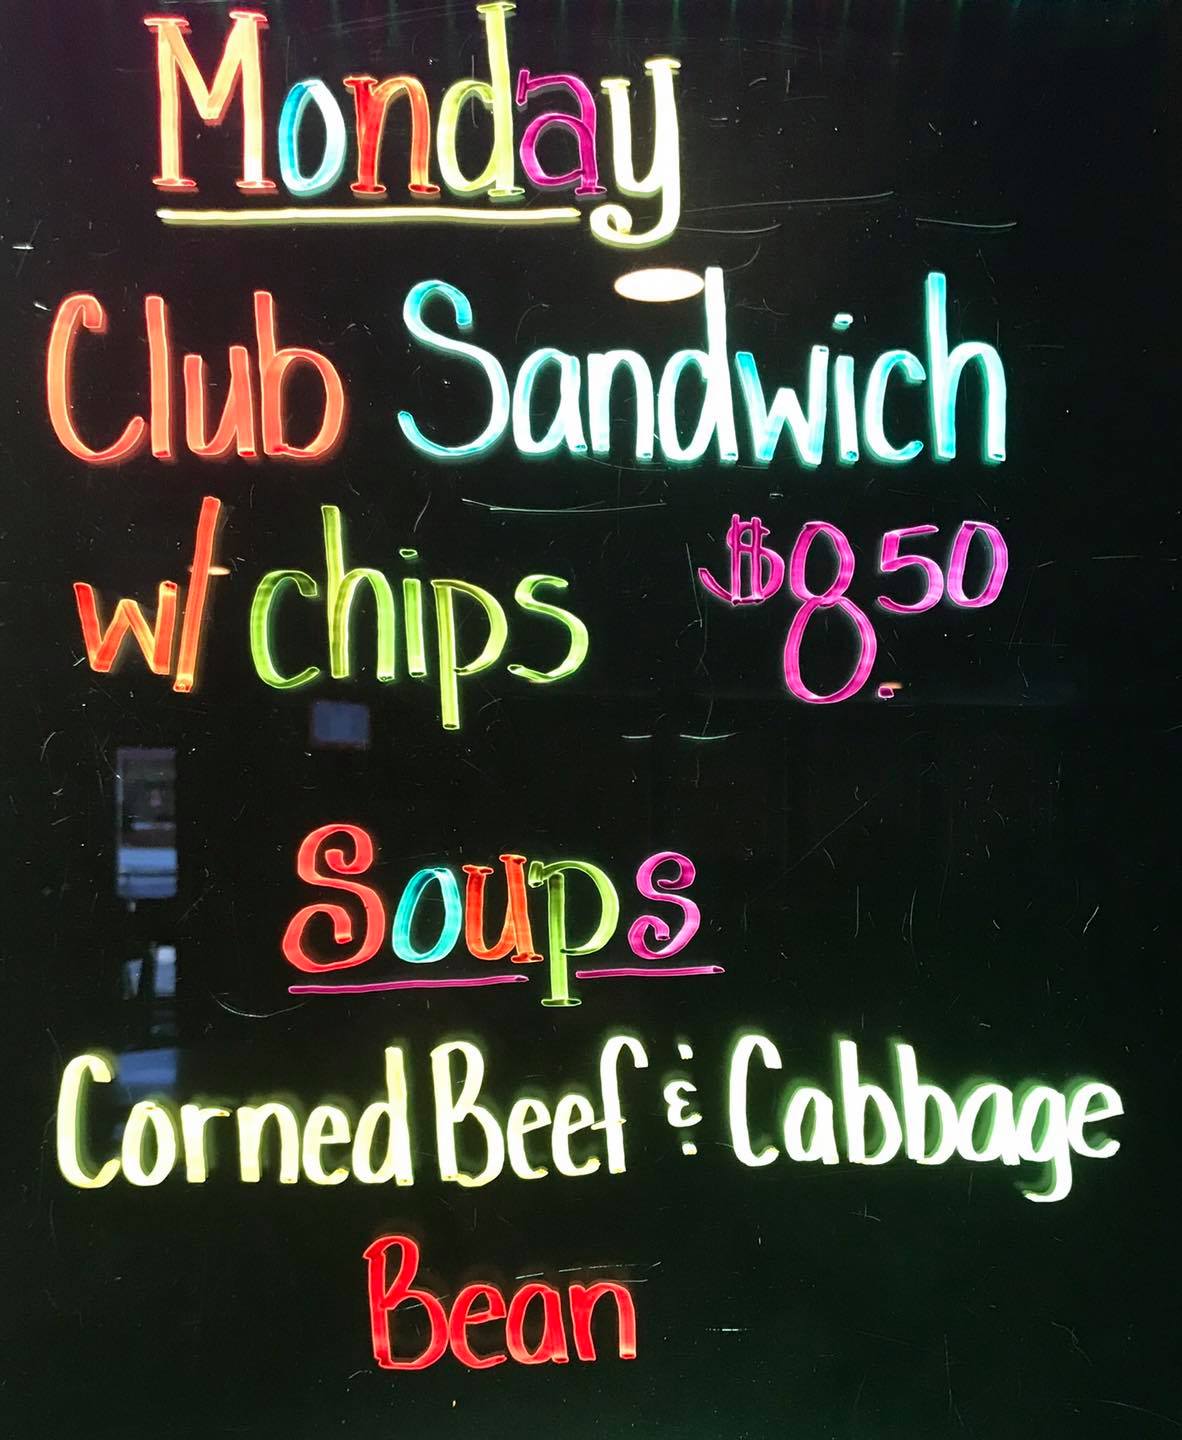 Monday
Club Sandwich
w/ chips $8.50
Soups
Corned Beef & Cabbage
Bean